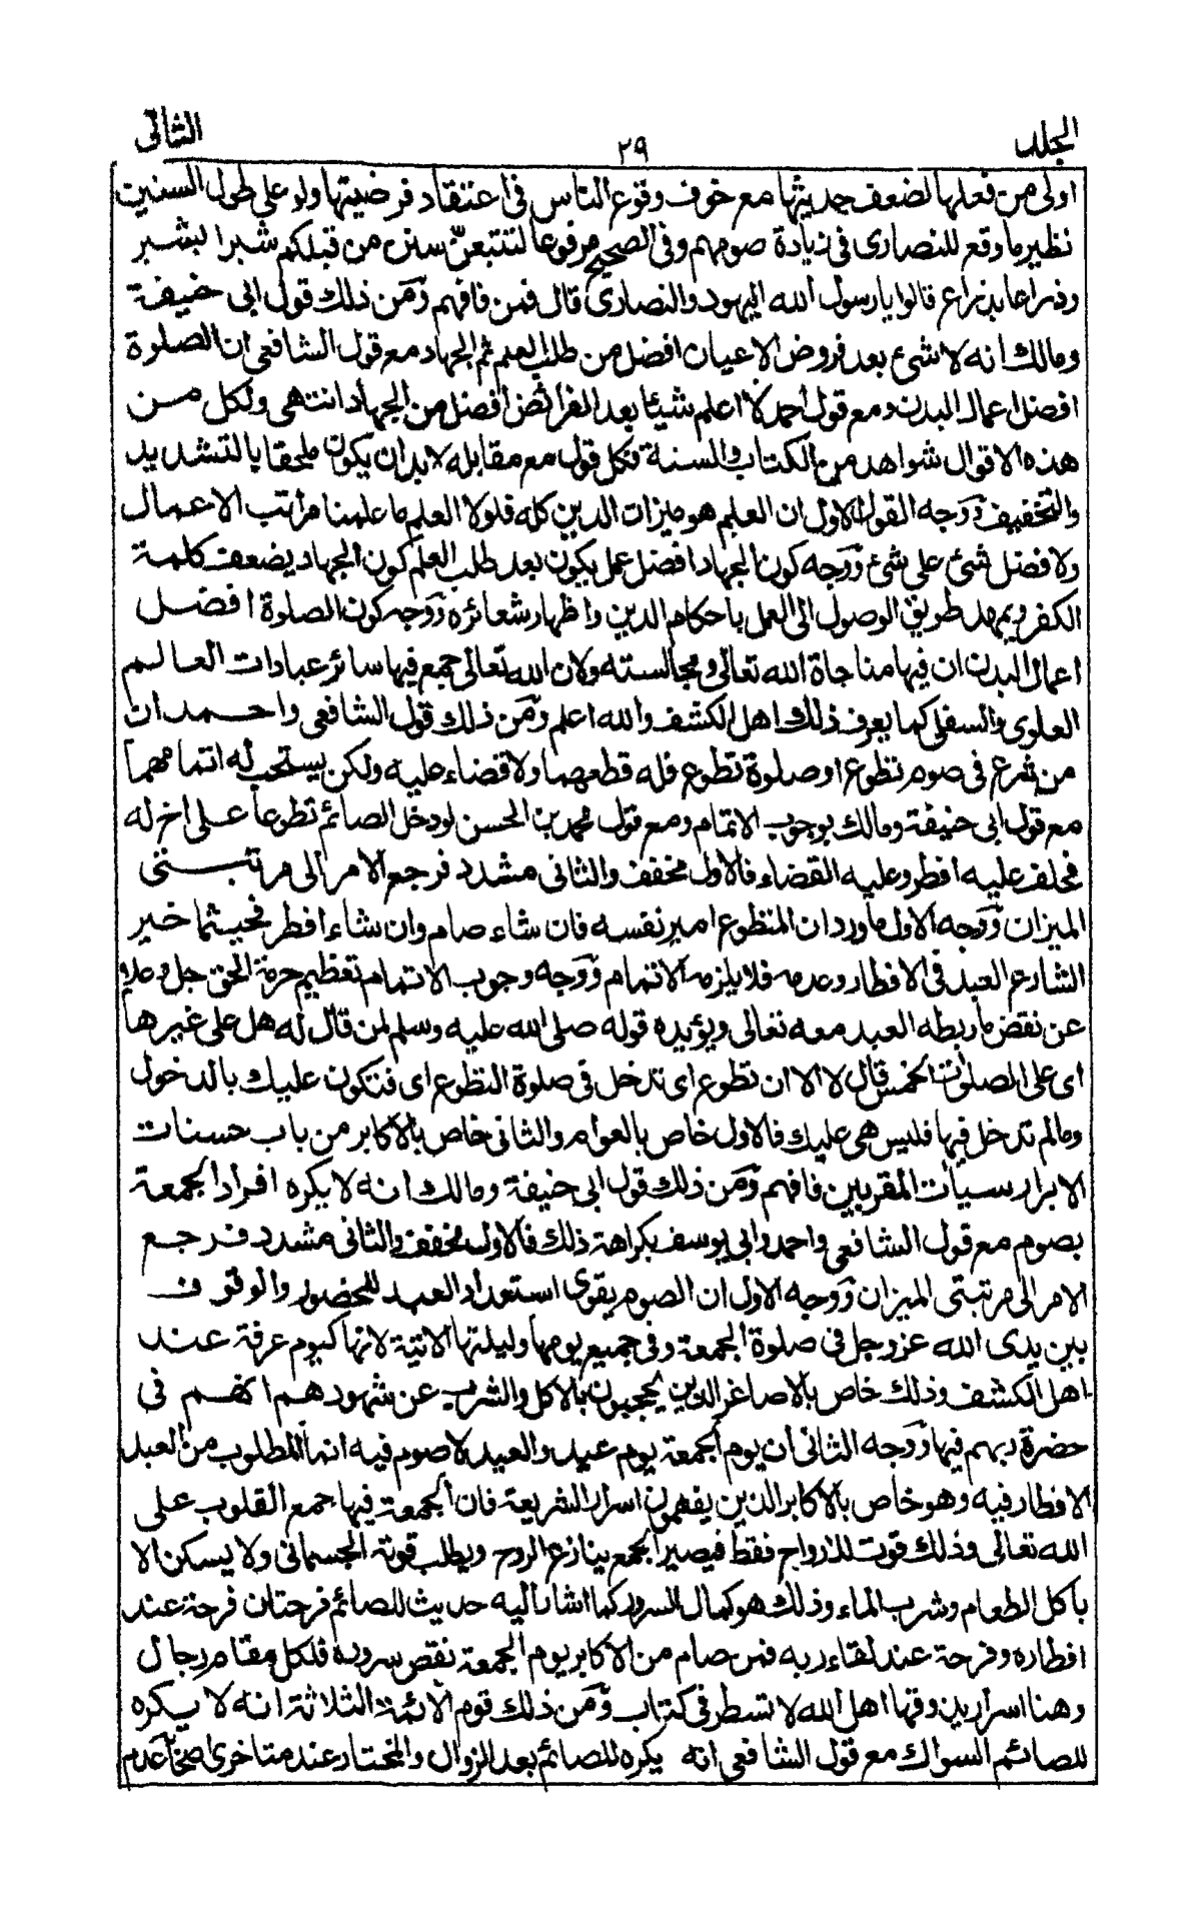 الجلد ٢٩ الثانى
اولى من فعلها لضعف حديثها مع خوف وقوع الناس فى اعتقاد فرضيتها ولو على طول السنين
نظير ما وقع للنصارى فى زيادة صومهم وفى الصحيح مرفوعا لتتبعنّ سنن من قبلكم شبرا بشبر
وذراعا بذراع قالوا يا رسول الله اليهود والنصارى قال فمن فافهم ومن ذلك قول ابى حنيفة
ومالك انه لا شئ بعد فروض الاعيان افضل من طلب العلم ثم الجهاد مع قول الشافعى ان الصلوة
افضل اعمال البدن ومع قول احمد لا اعلم شيئا بعد الفرائض افضل من الجهاد انتهى ولكل من
هذه الاقوال شواهد من الكتاب والسنة فكل قول مع مقابله لا بد ان يكون ملحقا بالتشديد
والتخفيف ووجه القول الاول ان العلم هو ميزان الدين كله فلولا العلم ما علمنا مراتب الاعمال
ولا فضل شئ على شئ ووجه كون الجهاد افضل عمل يكون بعد طلب العلم كون الجهاد يضعف كلمة
الكفر ويمهد طريق الوصول الى العمل باحكام الدين واظهار شعائره ووجه كون الصلوة افضل
اعمال البدن ان فيها مناجاة الله تعالى ومجالسته ولان الله تعالى جمع فيها سائر عبادات العالم
العلوى والسفلى كما يعرف ذلك اهل الكشف والله اعلم ومن ذلك قول الشافعى واحمد ان
من شرع فى صوم تطوع او صلوة تطوع فله قطعهما ولا قضاء عليه ولكن يستحب له اتمامهما
مع قول ابى حنيفة ومالك بوجوب الاتمام ومع قول محمد بن الحسن لو دخل الصائم تطوعا على اخ له
فحلف عليه افطر وعليه القضاء فالاول مخفف والثانى مشدد فرجع الامر الى مرتبتى
الميزان ووجه الاول ما ورد ان المتطوع امير نفسه فان شاء صام وان شاء افطر فحيثما خير
الشارع العبد فى الافطار وعدمه فلا يلزمه الاتمام ووجه وجوب الاتمام تعظيم حرمة الحق جل وعلا
عن نقض ما ربطه العبد معه تعالى ويؤيده قوله صلى الله عليه وسلم لمن قال له هل على غيرها
اى على الصلوٰت الخمس قال لا الا ان تطوع اى تدخل فى صلوة التطوع اى فتكون عليك بالدخول
وما لم تدخل فيها فليس هى عليك فالاول خاص بالعوام والثانى خاص بالاكابر من باب حسنات
الابرار سيأت المقربين فافهم ومن ذلك قول ابى حنيفة ومالك انه لا يكره افراد الجمعة
بصوم مع قول الشافعى واحمد وابى يوسف بكراهة ذلك فالاول مخفف والثانى مشدد فرجع
الامر الى مرتبتى الميزان ووجه الاول ان الصوم يقوى استعداد العبد للحضور والوقوف
بين يدى الله عز وجل فى صلوة الجمعة وفى جميع يومها وليلتها الاتية لانها كيوم عرفة عند
اهل الكشف وذلك خاص بالاصاغر الذين يحجبون بالاكل والشرب عن شهودهم انهم فى
حضرة ربهم فيها ووجه الثانى ان يوم الجمعة يوم عيد والعيد لا صوم فيه انما المطلوب من العبد
الافطار فيه وهو خاص بالاكابر الذين يفهمون اسرار الشريعة فان الجمعة فيها جمع القلوب على
الله تعالى وذلك قوت للارواح فقط فيصير الجمع ينازع الروح ويطلب قوته الجسمانى ولا يسكن الا
باكل الطعام وشرب الماء وذلك هو كمال السرور كما اشار اليه حديث للصائم فرحتان فرحة عند
افطاره وفرحة عند لقاء ربه فمن صام من الاكابر يوم الجمعة نقص سروره فلكل مقام رجال
وهنا اسرار يذوقها اهل الله لا تسطر فى كتاب ومن ذلك قوم الائمة الثلاثة انه لا يكره
للصائم السواك مع قول الشافعى انه يكره للصائم بعد الزوال والمختار عند متاخرى اصحابه عدم